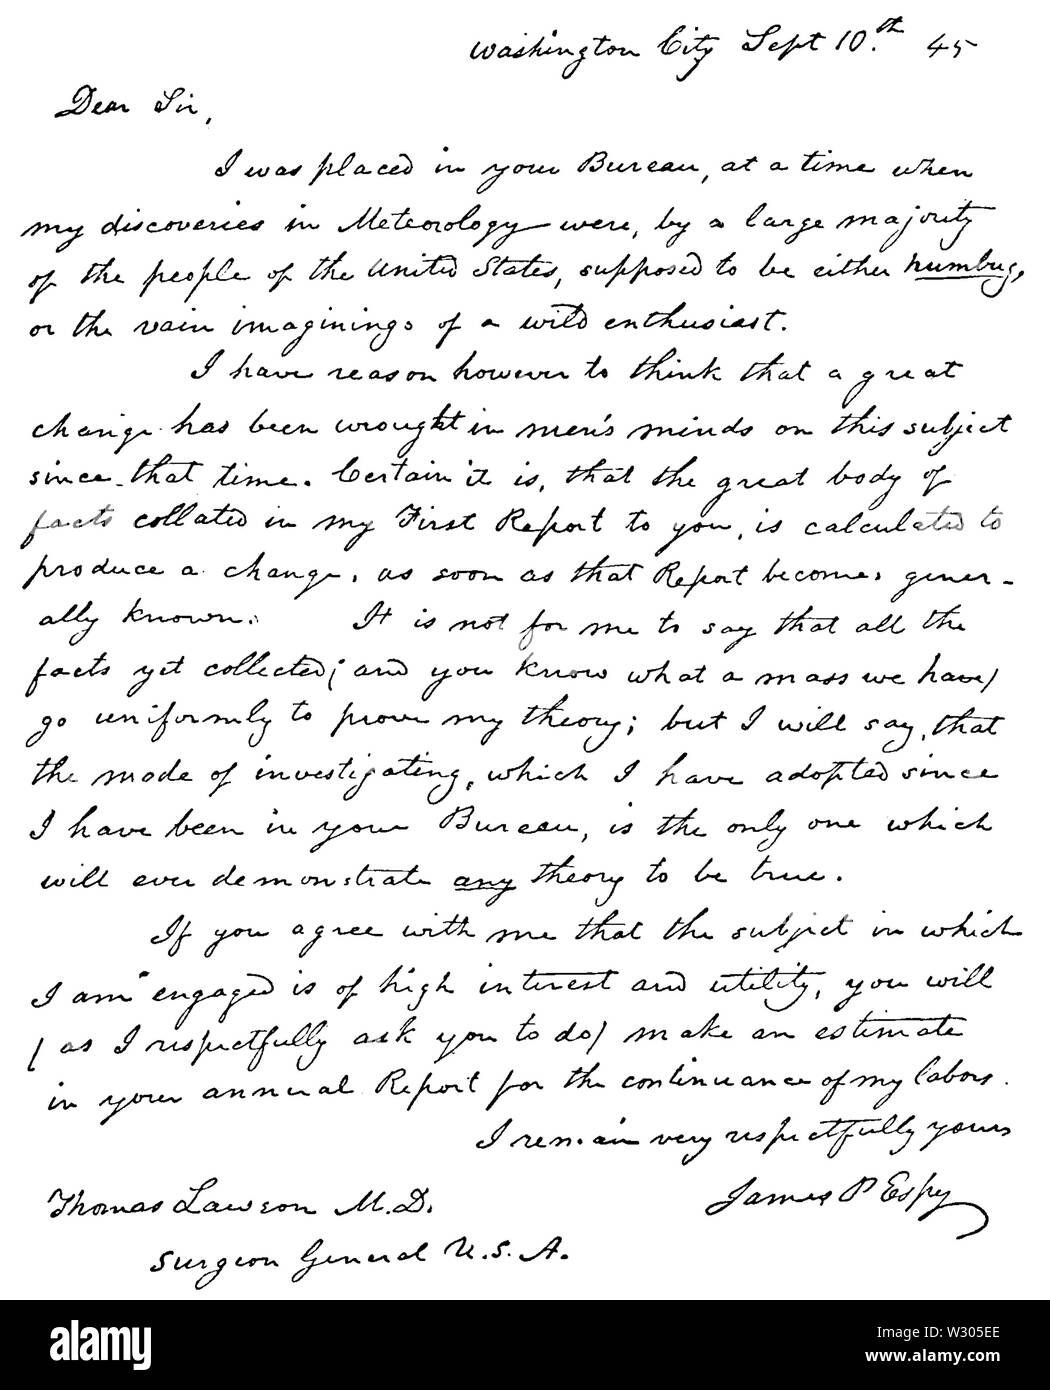 Washington City Sept 10.th 45
Dear Sir,
I was placed in your Bureau, at a time when
my discoveries in Meteorology were, by a large majority
of the people of the United States, supposed to be either humbug,
or the vain imaginings of a wild enthusiast.
I have reason however to think that a great
change has been wrought in men's minds on this subject
since that time. Certain it is, that the great body of
facts collated in my First Report to you, is calculated to
produce a change, as soon as that Report becomes gener-
ally known. It is not for me to say that all the
facts yet collected; and you know what a mass we have)
go uniformly to prove my theory; but I will say, that
the mode of investigating, which I have adopted since
I have been in your Bureau, is the only one which
will ever demonstrate any theory to be true.
If you agree with me that the subject in which
I am engaged is of high interest and utility, you will
(as I respectfully ask you to do) make an estimate
in your annual Report for the continuance of my labors.
I remain very respectfully yours
James P Espy
Thomas Lawson M.D.
Surgeon General U.S.A.
alamy
Image ID: W305EE
www.alamy.com